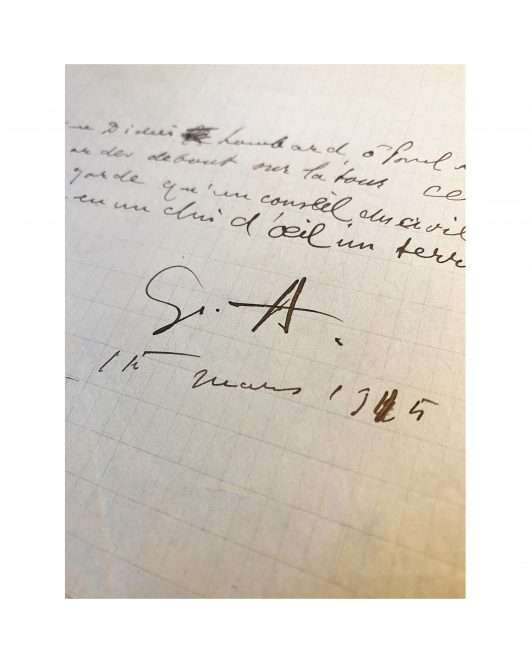 Didier Lombard, ô Pond
debout sur la tour ce
garde qu'un conseil du civil
en un clin d'œil un terr
G. A.
15 mars 1915